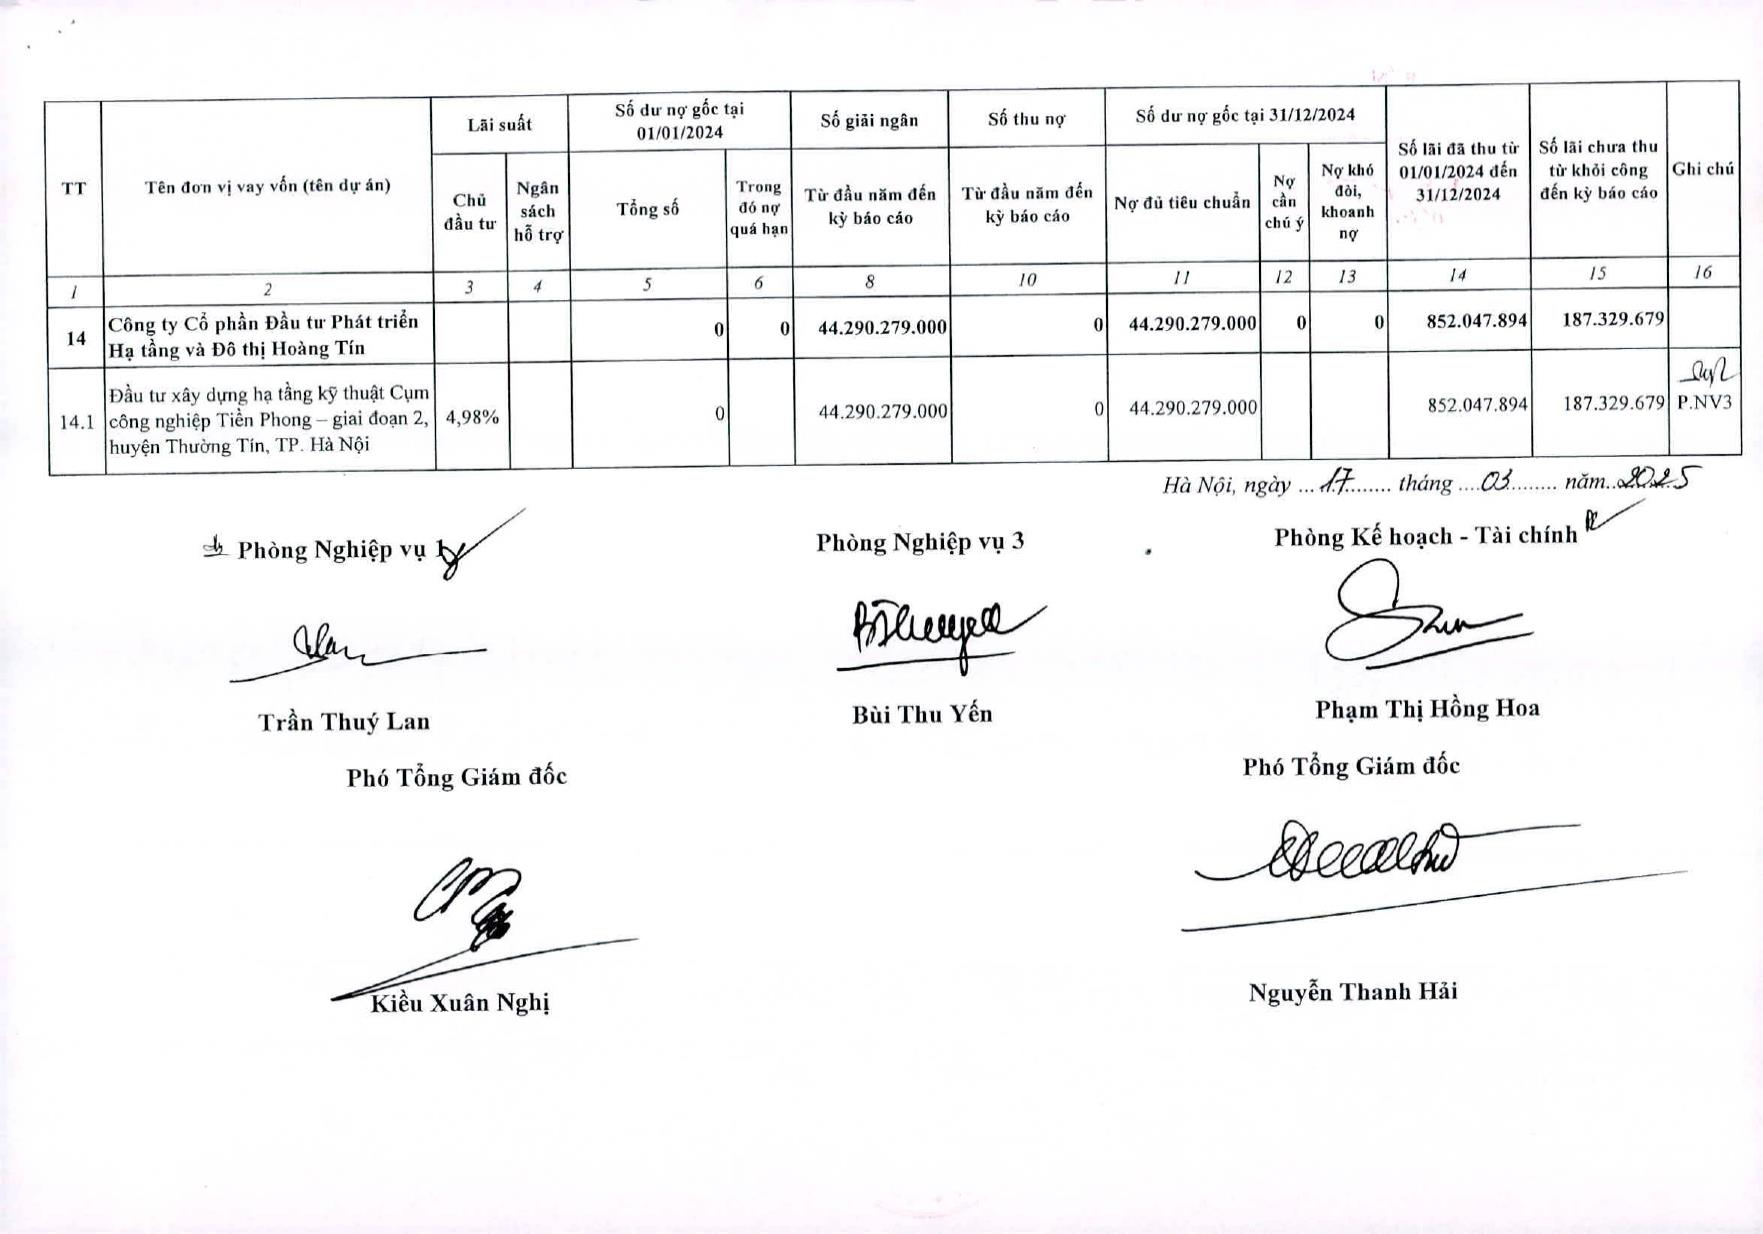 TT
Tên đơn vị vay vốn (tên dự án)
Lãi suất
Số dư nợ gốc tại
01/01/2024
Số giải ngân
Số thu nợ
Số dư nợ gốc tại 31/12/2024
Số lãi đã thu từ
01/01/2024 đến
31/12/2024
Số lãi chưa thu
từ khởi công
đến kỳ báo cáo
Ghi chú
Chủ
đầu tư
Ngân
sách
hỗ trợ
Tổng số
Trong
đó nợ
quá hạn
Từ đầu năm đến
kỳ báo cáo
Từ đầu năm đến
kỳ báo cáo
Nợ đủ tiêu chuẩn
Nợ
cần
chú ý
Nợ khó
đòi,
khoanh
nợ
1 2 3 4 5 6 8 10 11 12 13 14 15 16
14
Công ty Cổ phần Đầu tư Phát triển
Hạ tầng và Đô thị Hoàng Tín
0 0 44.290.279.000 0 44.290.279.000 0 0 852.047.894 187.329.679
14.1
Đầu tư xây dựng hạ tầng kỹ thuật Cụm
công nghiệp Tiền Phong – giai đoạn 2,
huyện Thường Tín, TP. Hà Nội
4,98% 0 44.290.279.000 0 44.290.279.000 852.047.894 187.329.679 P.NV3
Hà Nội, ngày ...17........ tháng ....03........ năm..2025
Phòng Nghiệp vụ 1
Phòng Nghiệp vụ 3
Phòng Kế hoạch - Tài chính
Trần Thuý Lan
Bùi Thu Yến
Phạm Thị Hồng Hoa
Phó Tổng Giám đốc
Phó Tổng Giám đốc
Kiều Xuân Nghị
Nguyễn Thanh Hải